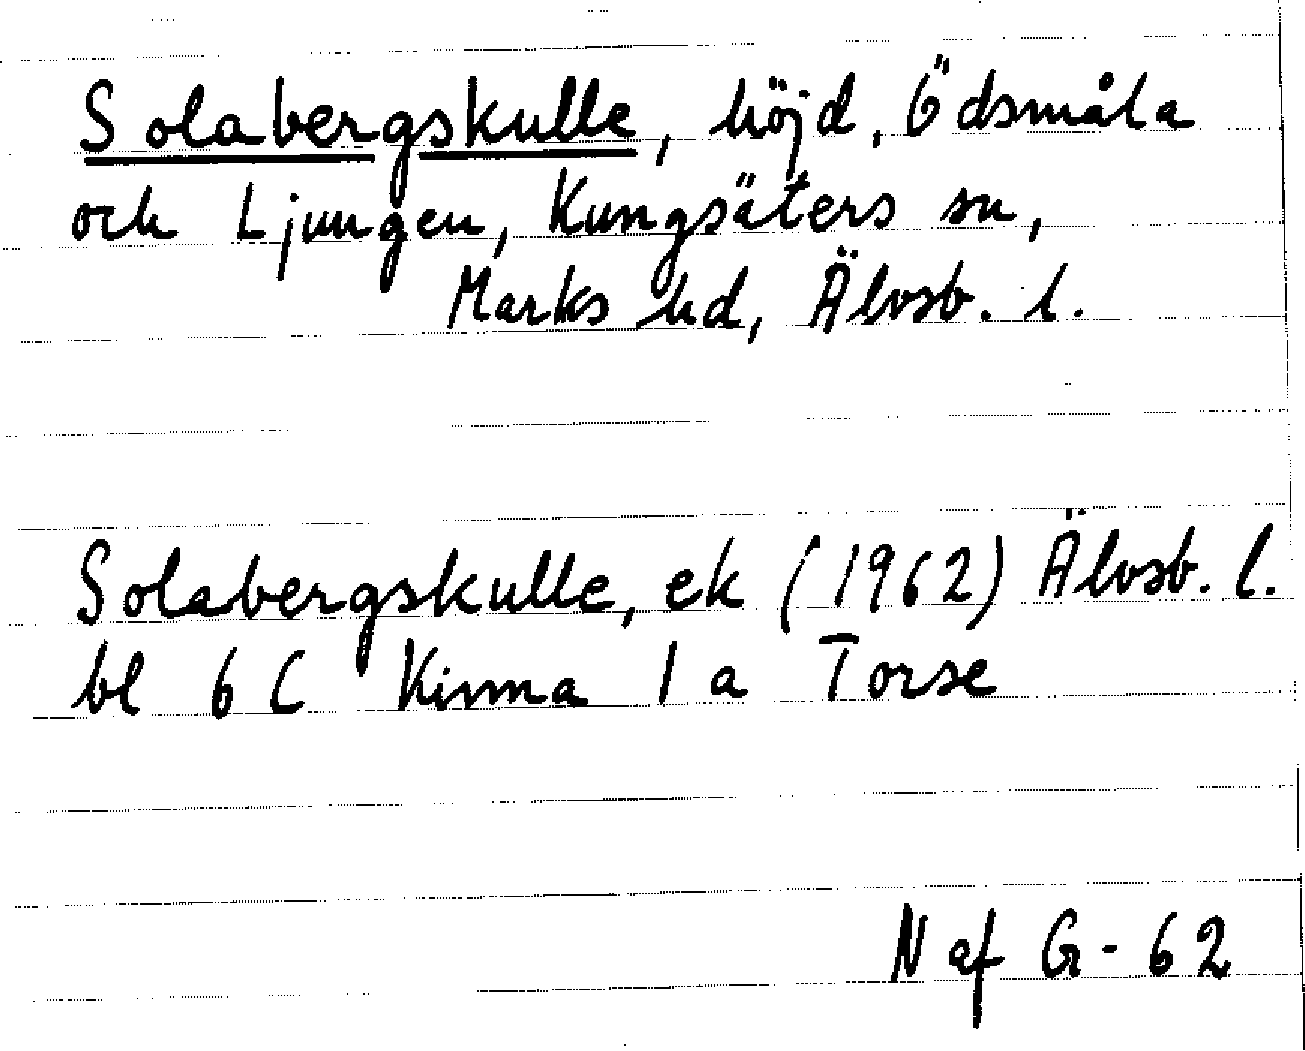 Solabergskulle, höjd, Ödsmåla
och Ljungen, Kungsäters sn,
Marks hd, Älvsb. l.
Solabergskulle, ek (1962) Älvsb. l.
bl 6 C Kinna 1 a Torse
N af G - 62